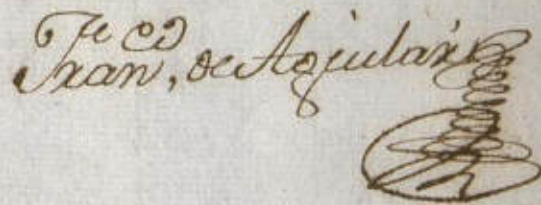 Fran,co de Aguilar